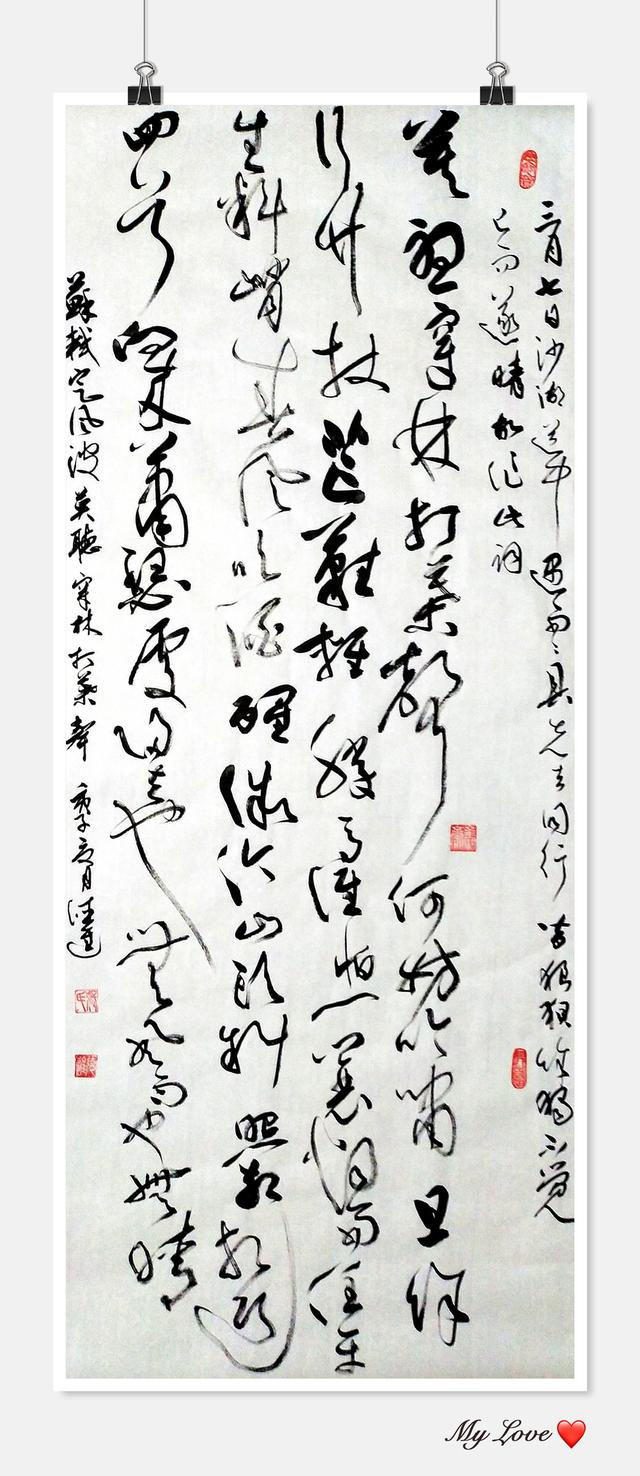 三月七日沙湖道中遇雨雨具先去同行皆狼狽余獨不覺
已而遂晴故作此詞
莫聽穿林打葉聲何妨吟嘯且徐
行竹杖芒鞋輕勝馬誰怕一蓑烟雨任平
生料峭春風吹酒醒微冷山頭斜照却相迎
回首向來蕭瑟處歸去也無風雨也無晴
蘇軾定風波莫聽穿林打葉聲庚子
My Love❤️